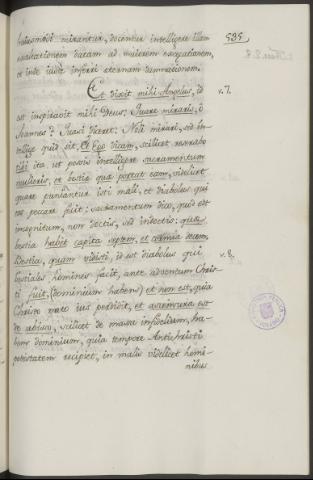 535
hatesmodi mirantur, docemur intelligere illam
exaltationem datam ad maiorem execrationem,
et inde iuste inferri eternam damnationem.
Et dixit mihi Angelus, id
est inspiravit mihi Deus: Quare miraris, ò
Joannes? Quasi diceret: Noli mirari, sed in-
tellige quid sit. Et Ego dicam, scilicet revelabo
tibi ita ut possis intelligere sacramentum
mulieris, et bestiæ quæ portat eam, videlicet
quare puniantur isti mali, et diabolus qui
eos peccare facit: sacramentum dico, quod est
incognitum, non doctis, sed indoctis: quæ
bestia habet capita septem, et cornua decem.
Bestia, quam vidisti, id est diabolus qui
bestiales homines facit, ante adventum Chris-
ti fuit, (dominium habens) et non est, quia
Christo vero ius perdidit, et ascensura est
de abisco, scilicet de massa infidelium, ha-
bens dominium, quia tempore Antichristi
potestatem recipiet, in malis videlicet homi-
nibus
v. 7.
v. 8.